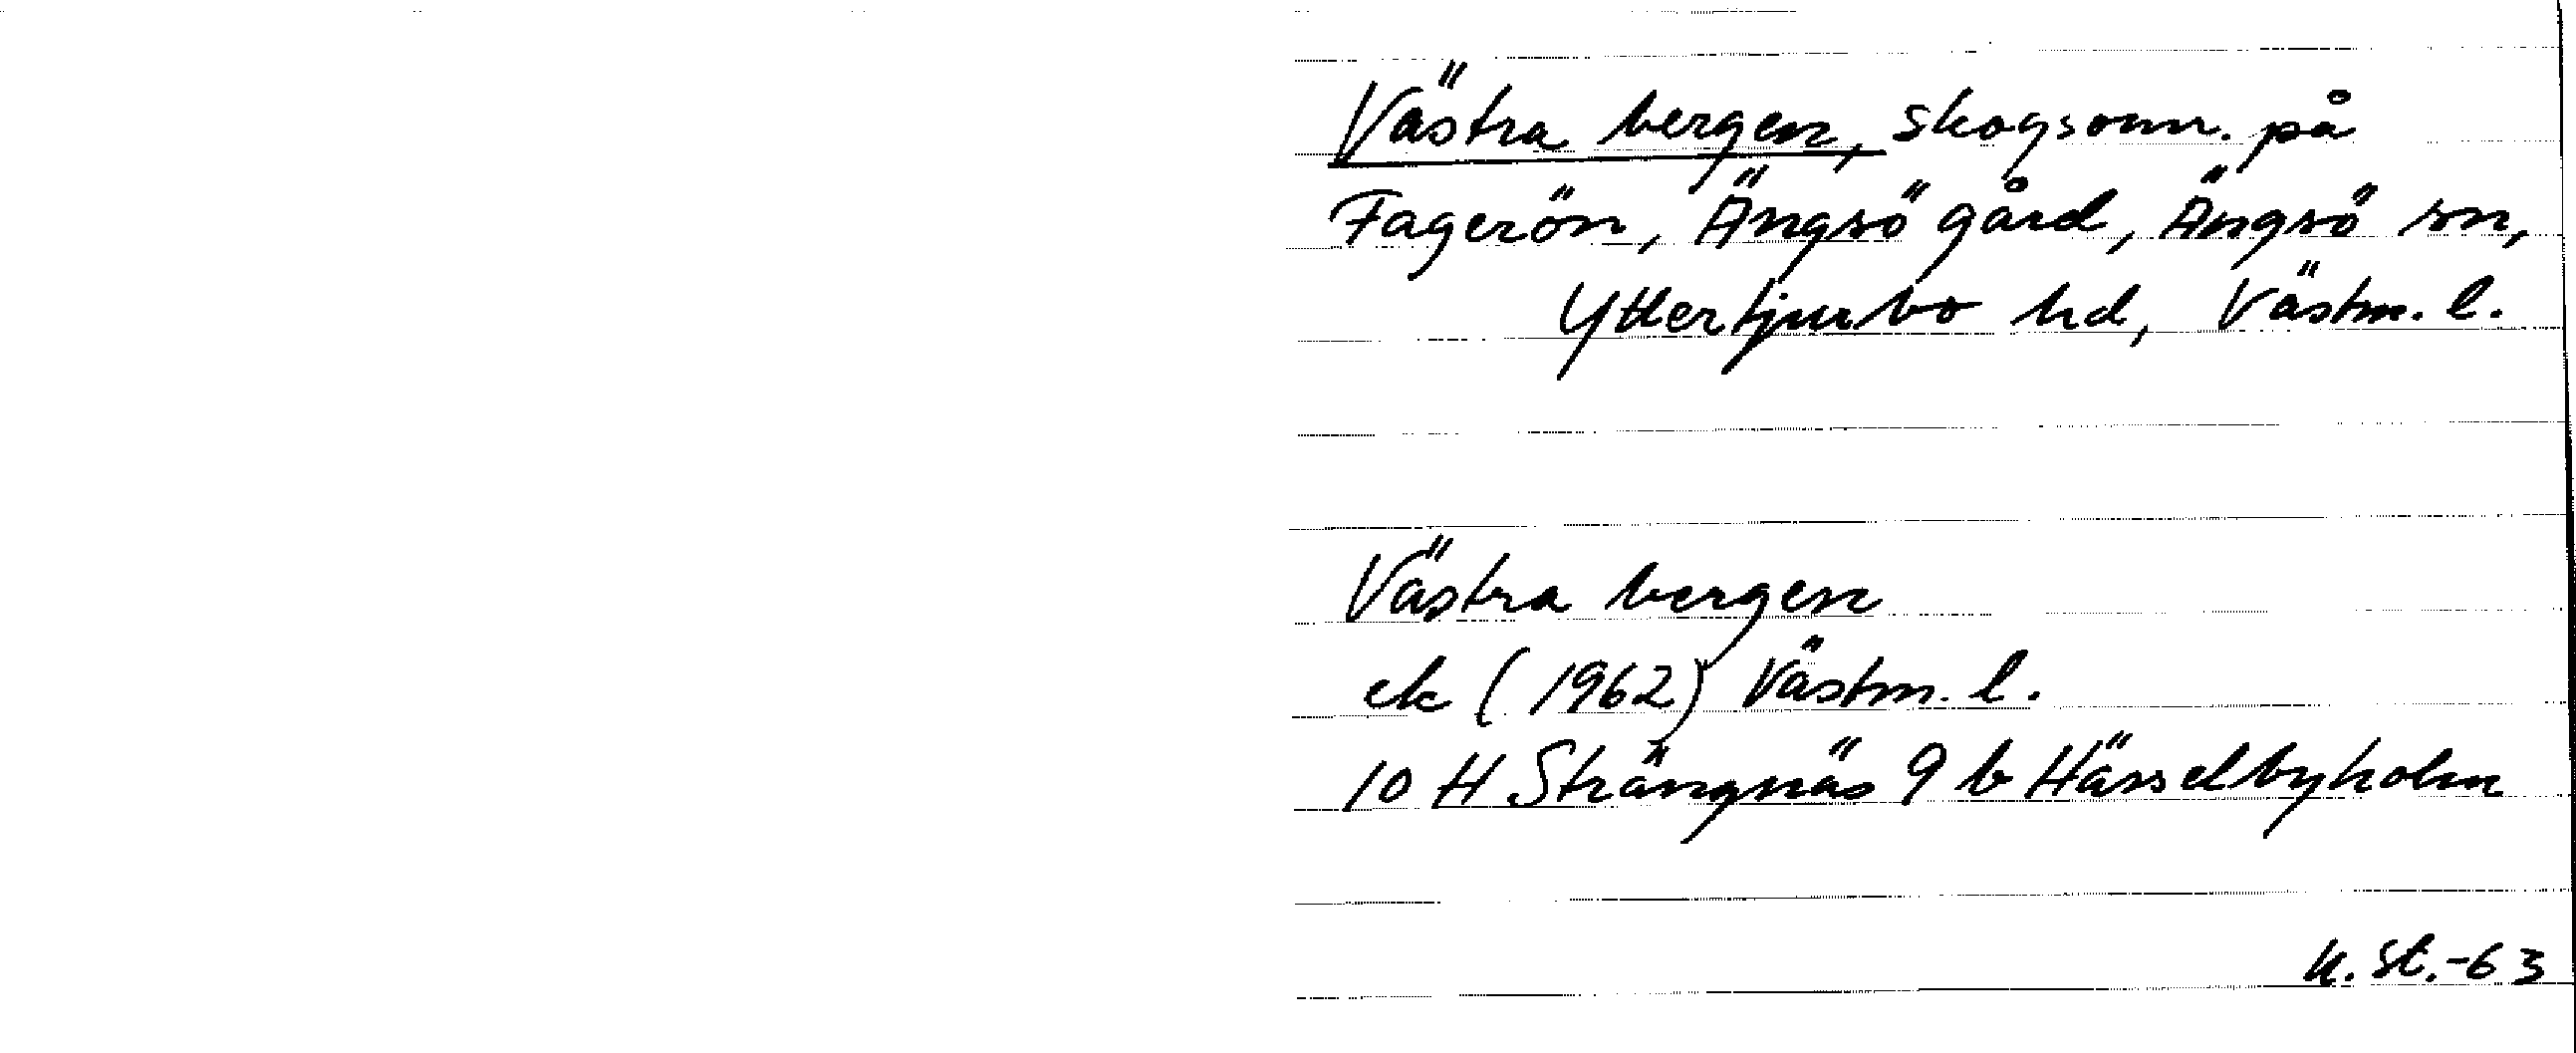 Västra bergen, skogsomr. på
Fagerön, Ängsö gård, Ängsö sn,
Yttertjurbo hd, Västm. l.
Västra bergen
ek (1962) Västm. l.
10 H Strängnäs 9 b Hässelbyholm
K. St. -63